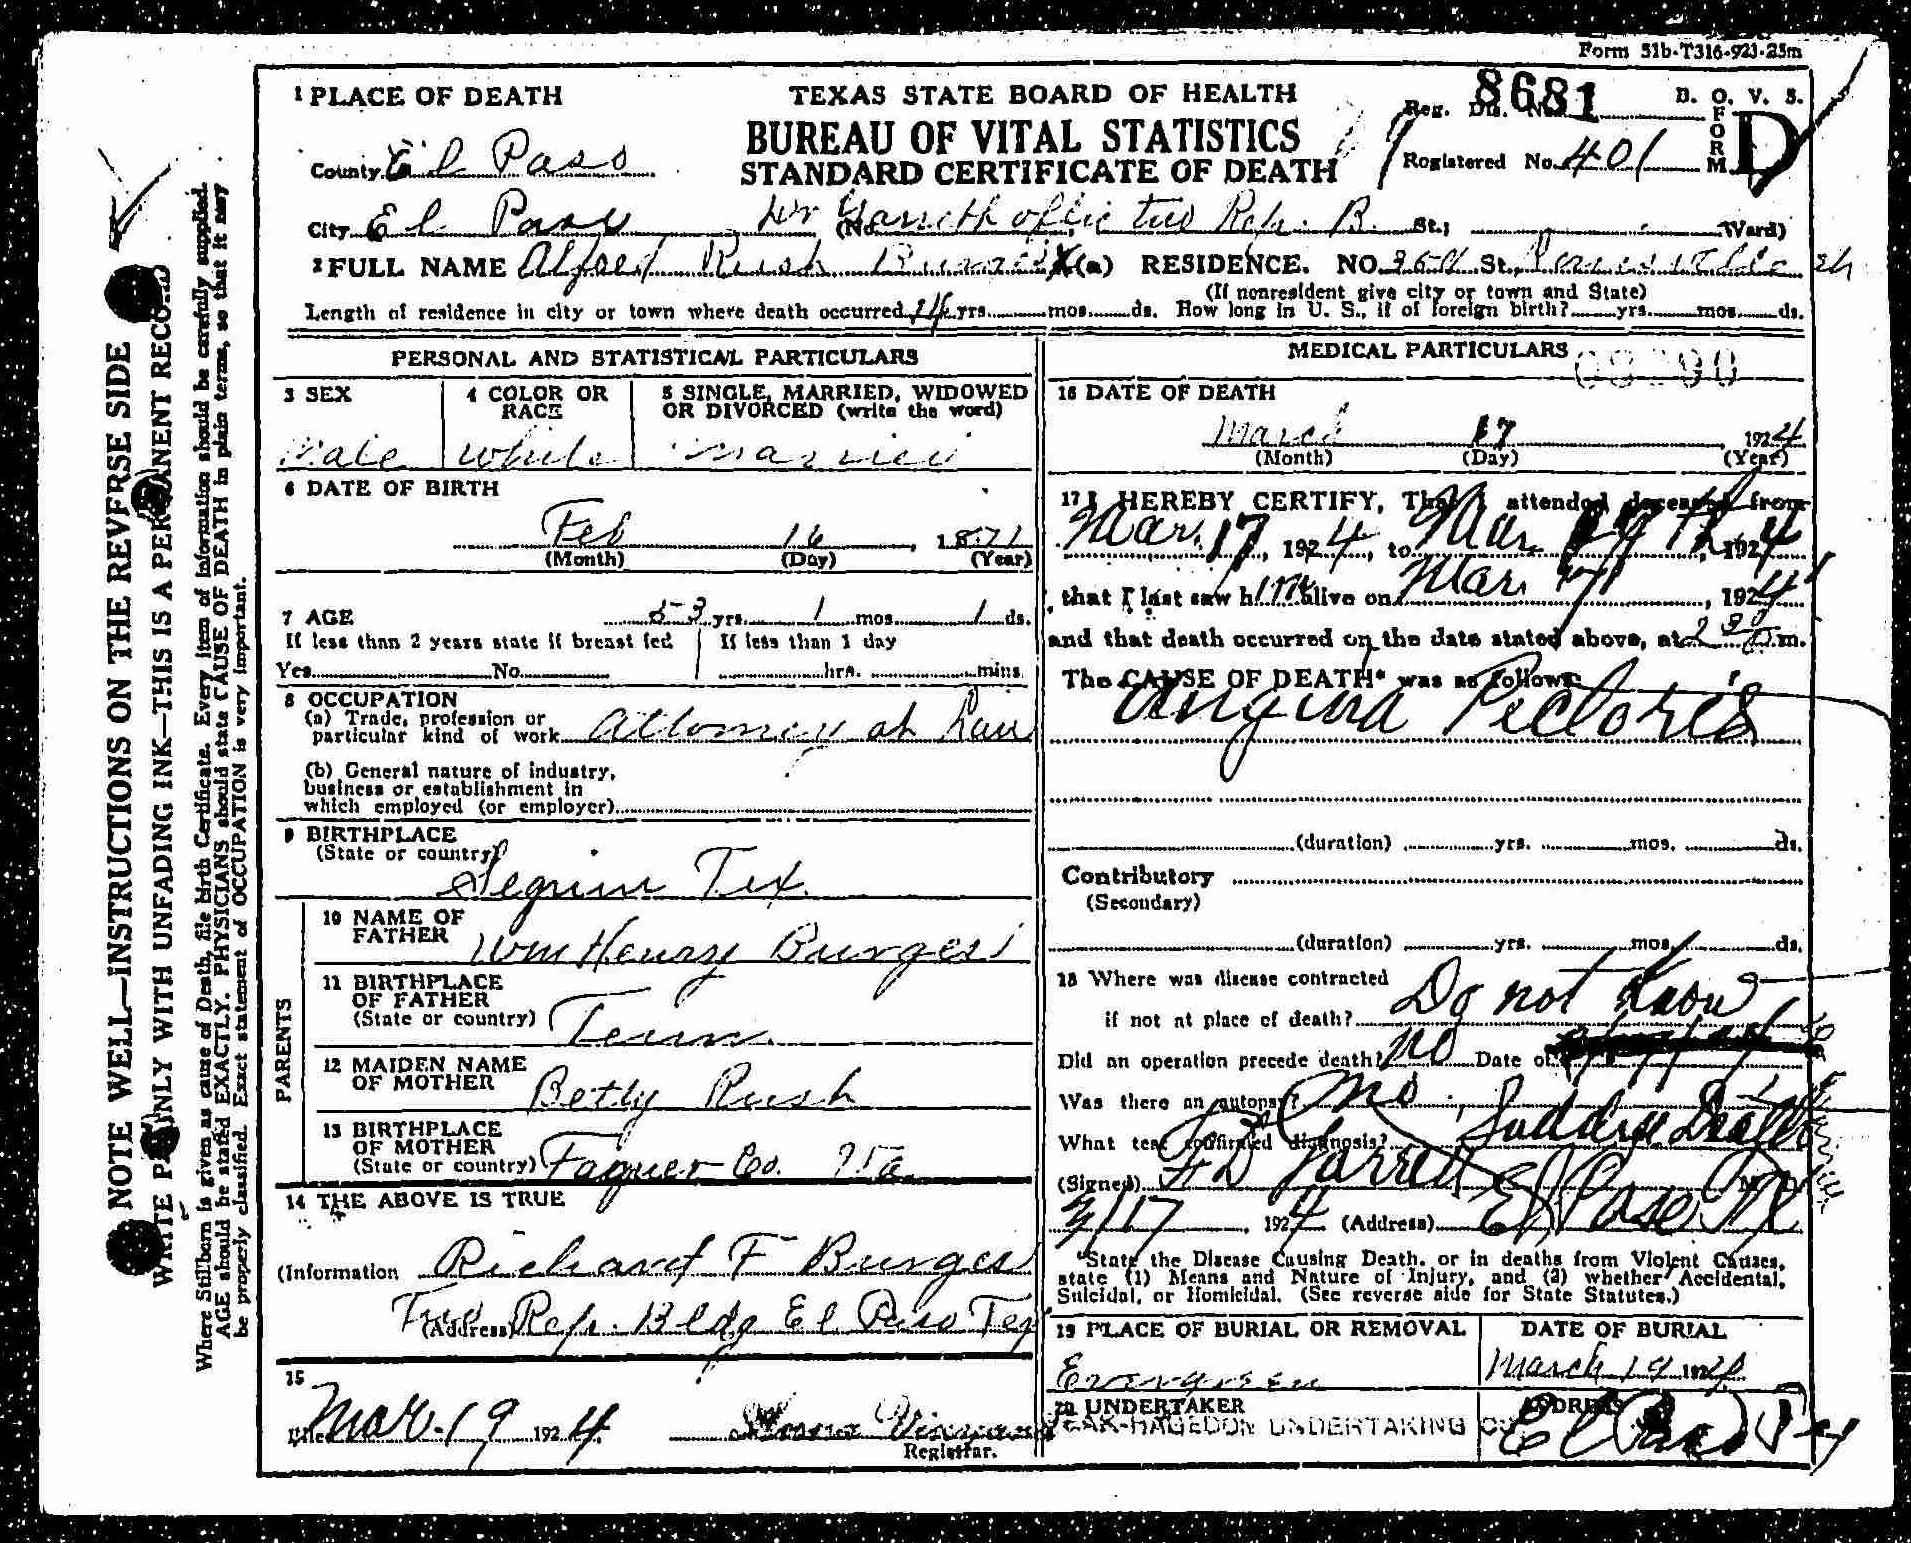 Form 51b-T316-923-25m
1 PLACE OF DEATH
TEXAS STATE BOARD OF HEALTH
Reg. Dis. No. 8681
B. O. V. S.
BUREAU OF VITAL STATISTICS
FORM D
County El Paso
STANDARD CERTIFICATE OF DEATH
Registered No. 401
City El Paso (No. office two Rep. B. St.; Ward)
2 FULL NAME Alfred Rush Burges (a) RESIDENCE. NO. St.
(If nonresident give city or town and State)
Length of residence in city or town where death occurred yrs. mos. ds. How long in U. S., if of foreign birth? yrs. mos. ds.
PERSONAL AND STATISTICAL PARTICULARS
3 SEX
4 COLOR OR RACE
5 SINGLE, MARRIED, WIDOWED
OR DIVORCED (write the word)
Male White Married
6 DATE OF BIRTH
Feb 16, 1871
(Month) (Day) (Year)
7 AGE 53 yrs. 1 mos. 1 ds.
If less than 2 years state if breast fed
If less than 1 day
Yes No hrs. mins.
8 OCCUPATION
(a) Trade, profession or
particular kind of work Attorney at Law
(b) General nature of industry,
business or establishment in
which employed (or employer)
9 BIRTHPLACE
(State or country)
Seguin Tex
PARENTS
10 NAME OF
FATHER Wm Henry Burges
11 BIRTHPLACE
OF FATHER
(State or country) Tenn
12 MAIDEN NAME
OF MOTHER Betty Rush
13 BIRTHPLACE
OF MOTHER
(State or country) Faquer Co. Va
14 THE ABOVE IS TRUE
(Information Richard F Burges
(Address Two Rep. Bldg El Paso Tex
15
Filed Mar. 19 1924
Registrar.
MEDICAL PARTICULARS
16 DATE OF DEATH
March 17, 1924
(Month) (Day) (Year)
17 I HEREBY CERTIFY, That I attended deceased from
Mar. 17, 1924, to Mar 17th, 1924
that I last saw him alive on Mar 17, 1924
and that death occurred on the date stated above, at 2 30 P.m.
The CAUSE OF DEATH* was as follows:
Angina Pectoris
(duration) yrs. mos. ds.
Contributory
(Secondary)
(duration) yrs. mos. ds.
18 Where was disease contracted
if not at place of death? Do not Know
Did an operation precede death? No Date of
Was there an autopsy? No
What test confirmed diagnosis? Sudden Death
(Signed)
3/17, 1924 (Address) El Paso Tex
*State the Disease Causing Death, or in deaths from Violent Causes,
state (1) Means and Nature of Injury, and (2) whether Accidental,
Suicidal, or Homicidal. (See reverse side for State Statutes.)
19 PLACE OF BURIAL OR REMOVAL
DATE OF BURIAL
Evergreen
March 19 1924
20 UNDERTAKER
ADDRESS
PEAK-HAGEDON UNDERTAKING CO
El Paso Tex
NOTE WELL—INSTRUCTIONS ON THE REVERSE SIDE
WRITE PLAINLY WITH UNFADING INK—THIS IS A PERMANENT RECORD
Where Stillborn is given as cause of Death, file birth Certificate. Every item of information should be carefully supplied.
AGE should be stated EXACTLY. PHYSICIANS should state CAUSE OF DEATH in plain terms, so that it may
be properly classified. Exact statement of OCCUPATION is very important.